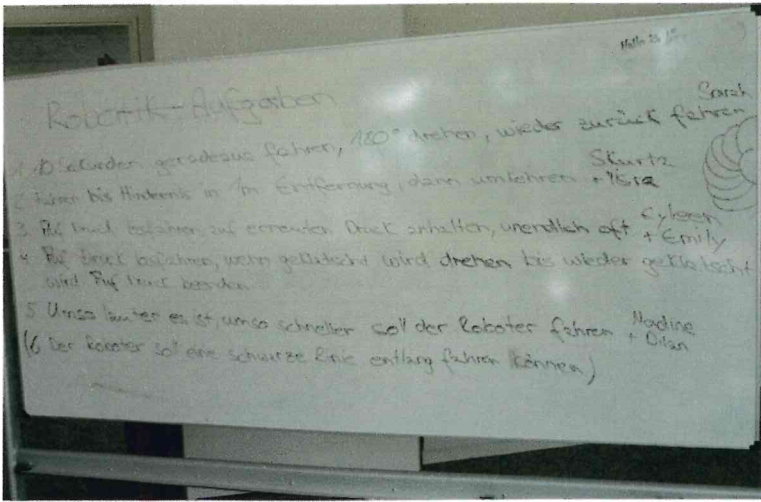 Hallo
Robotik-Aufgaben
Sarah
1. 10 Sekunden geradeaus fahren, 180° drehen, wieder zurück fahren
Skurta
2. Fahren bis Hindernis in 1m Entfernung, dann umkehren +
3. Auf Druck losfahren, auf erneuten Druck anhalten, unendlich oft
+ Emily
4. Auf Druck losfahren, wenn geklatscht wird drehen bis wieder geklatscht
wird. Auf Druck beenden
5. Umso lauter es ist, umso schneller soll der Roboter fahren
Nadine
+ Dilan
(6. Der Roboter soll eine schwarze Linie entlang fahren können)